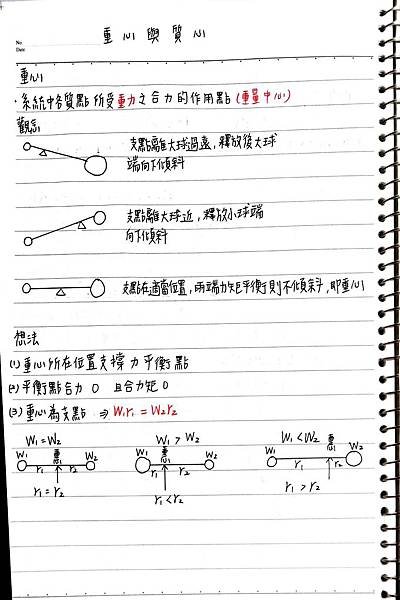 重心與質心
No.
Date
重心
·系統中各質點所受重力之合力的作用點(重量中心)
觀念
支點離大球過遠,釋放後大球
端向下傾斜
支點離大球近,釋放小球端
向下傾斜
支點在適當位置,兩端力矩平衡則不傾斜,即重心
想法
(1)重心所在位置支撐力平衡點
(2)平衡點合力0 且合力矩0
(3)重心為支點 ⇒ W₁r₁ = W₂r₂
W₁ = W₂
W₁ 重心 W₂
r₁ r₂
r₁ = r₂
W₁ > W₂
W₁ 重心 W₂
r₁ r₂
r₁ < r₂
W₁ < W₂
W₁ 重心 W₂
r₁ r₂
r₁ > r₂